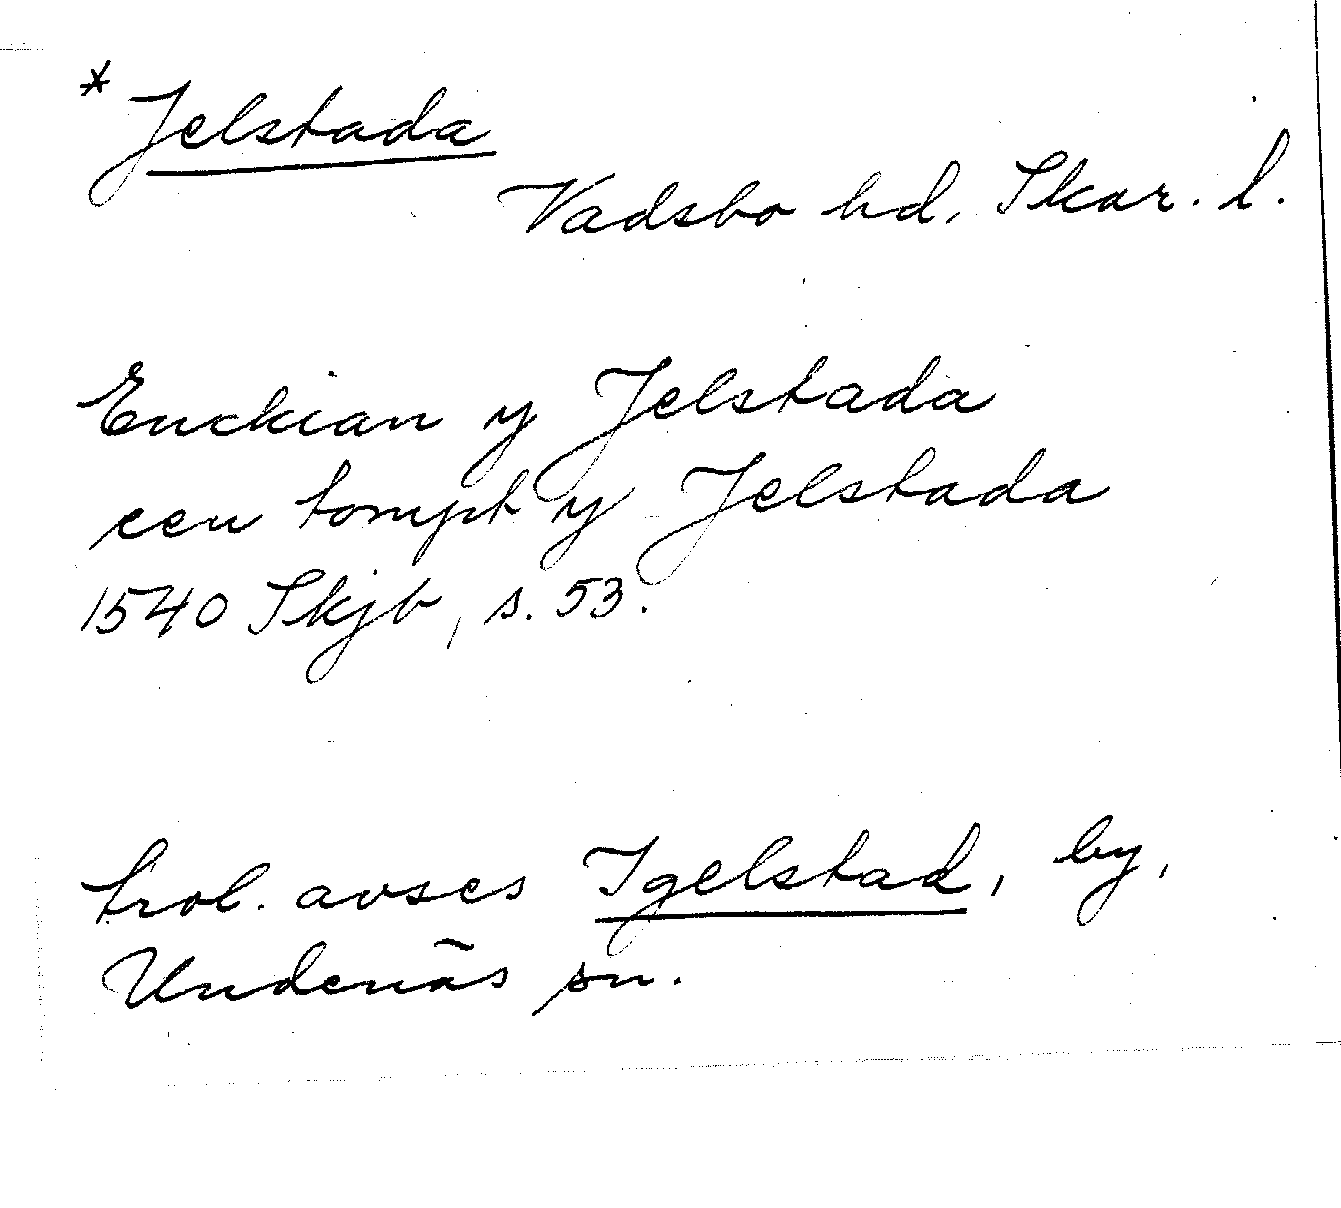 * Jelstada
Vadsbo hd, Skar. l.
Enckian y Jelstada
een tompt y Jelstada
1540 Skjb, s. 53.
trol. avses Igelstad, by,
Undenäs sn.